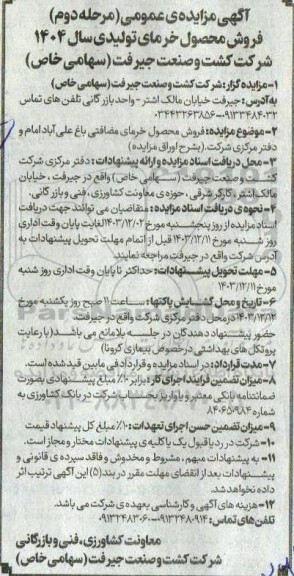 آگهی مزایده‌ی عمومی (مرحله دوم)
فروش محصول خرمای تولیدی سال ۱۴۰۴
شرکت کشت و صنعت جیرفت (سهامی خاص)
۱- مزایده گزار: شرکت کشت و صنعت جیرفت (سهامی خاص)
به آدرس: جیرفت خیابان مالک اشتر - واحد بازرگانی تلفن های تماس
۲- موضوع مزایده: فروش محصول خرمای مضافتی باغ علی آباد امام و
دفتر مرکزی شرکت. (بشرح اوراق مزایده)
۳- محل دریافت اسناد مزایده و ارائه پیشنهادات: دفتر مرکزی شرکت
کشت و صنعت جیرفت (سهامی خاص) واقع در جیرفت، خیابان
مالک اشتر، کارگر شرقی، حوزه ی معاونت کشاورزی، فنی و بازرگانی.
۴- نحوه ی دریافت اسناد مزایده: متقاضیان می توانند جهت دریافت
اسناد مزایده از روز پنجشنبه مورخ ۱۴۰۳/۱۲/۰۲ لغایت پایان وقت اداری
روز شنبه مورخ ۱۴۰۳/۱۲/۱۱ قبل از اتمام مهلت تحویل پیشنهادات به
آدرس شرکت واقع در جیرفت مراجعه نمایند.
۵- مهلت تحویل پیشنهادات: حداکثر تا پایان وقت اداری روز شنبه
مورخ ۱۴۰۳/۱۲/۱۱
۶- تاریخ و محل گشایش پاکتها: ساعت ۱۱ صبح روز یکشنبه مورخ
۱۴۰۳/۱۲/۱۲ در محل دفتر مرکزی شرکت واقع در جیرفت.
حضور پیشنهاد دهندگان در جلسه بلامانع می باشد (با رعایت
پروتکل های بهداشتی در خصوص بیماری کرونا)
۷- مدت قرارداد: در اسناد مزایده و قرارداد فی مابین قید شده است.
۸- میزان تضمین فرآیند اجرای کار: برابر ۱۰٪ مبلغ پیشنهادی بصورت
ضمانتنامه بانکی معتبر و یا واریز بحساب شرکت در بانک کشاورزی به
شماره ۸۴۰۶۵۰۹۸۴
۹- میزان تضمین حسن اجرای تعهدات: ۱۰٪ مبلغ کل پیشنهاد قیمت
۱۰- شرکت در رد یا قبول یک یا کلیه ی پیشنهادات مختار و مجاز است.
۱۱- به پیشنهادات مبهم، مشروط و مخدوش و فاقد سپرده ی قانونی و
پیشنهادات بعد از انقضای مهلت مقرر در بند (۵) این آگهی ترتیب اثر
داده نخواهد شد.
۱۲- هزینه های آگهی و کارشناسی بعهده ی شرکت می باشد.
تلفن های تماس: ۰۹۱۳۲۴۸۰۹۱۴-۰۹۱۳۲۴۸۳۰۶۰
معاونت کشاورزی، فنی و بازرگانی
شرکت کشت و صنعت جیرفت (سهامی خاص)